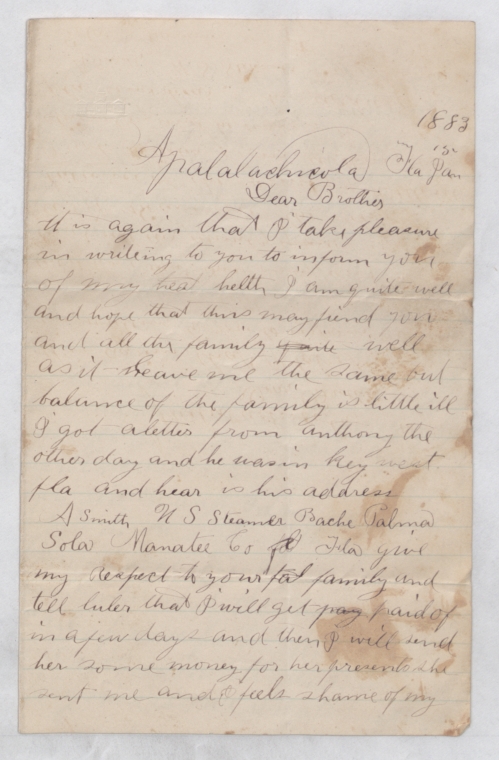 1883
Apalalachicola Fla Jan "5"
Dear Brother
it is again that I take pleasure
in writeing to you to inform you
of my heat helth I am quite well
and hope that this may fiend you
and all the family quite well
as it heave me the same but
balance of the family is little ill
I got aletter from anthony the
other day and he wasin key west
fla and hear is his address
A Smith U S Steamer Bache Palma
Sola Manatee Co Fla give
my respect to your family and
tell luler that I will get pay paid of
in a few days and then I will send
her some money for her presents she
sent me and I feels shame of my